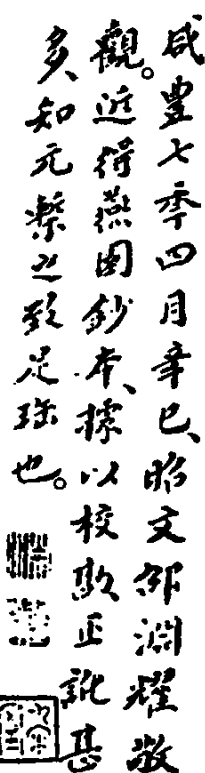 咸豐七季四月辛巳、昭文邵淵耀敬
觀。近得燕園鈔本、據以校勘正訛甚
多、知元槧之尤足珎也。